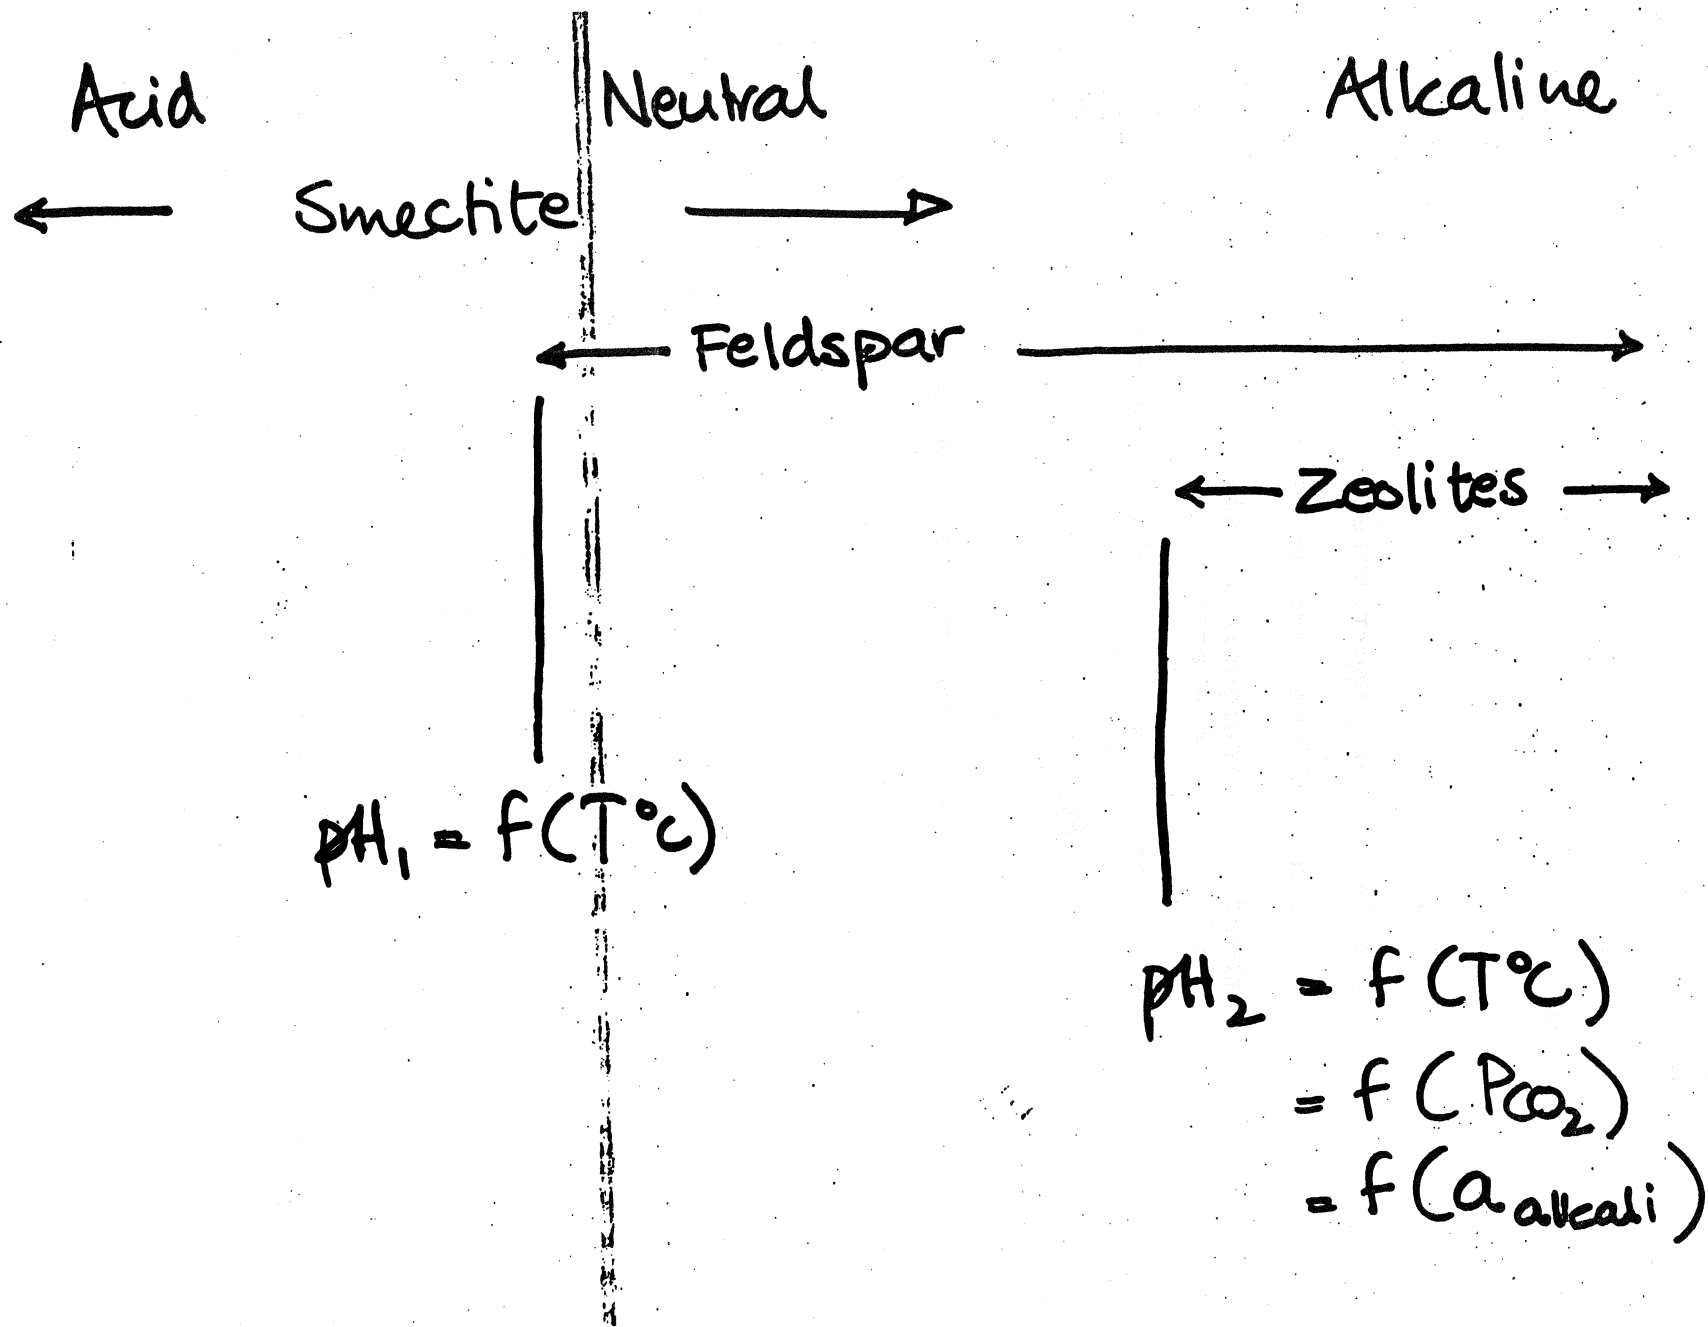 Acid Neutral Alkaline
← Smectite →
← Feldspar →
← Zeolites →
pH₁ = f(T°C)
pH₂ = f(T°C)
= f(Pco₂)
= f(a alkali)